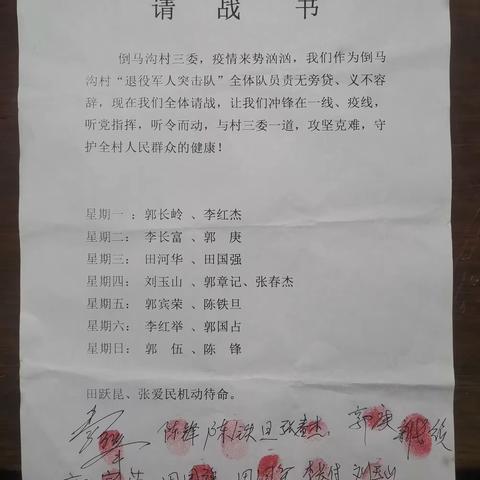 请战书
倒马沟村三委，疫情来势汹汹，我们作为倒马
沟村“退役军人突击队”全体队员责无旁贷、义不容
辞，现在我们全体请战，让我们冲锋在一线、疫线，
听党指挥，听令而动，与村三委一道，攻坚克难，守
护全村人民群众的健康！
星期一：郭长岭、李红杰
星期二：李长富、郭 庚
星期三：田河华、田国强
星期四：刘玉山、郭章记、张春杰
星期五：郭宾荣、陈铁旦
星期六：李红举、郭国占
星期日：郭 伍、陈 锋
田跃昆、张爱民机动待命。
陈锋 陈铁旦 张春杰 郭庚
田国强 刘玉山